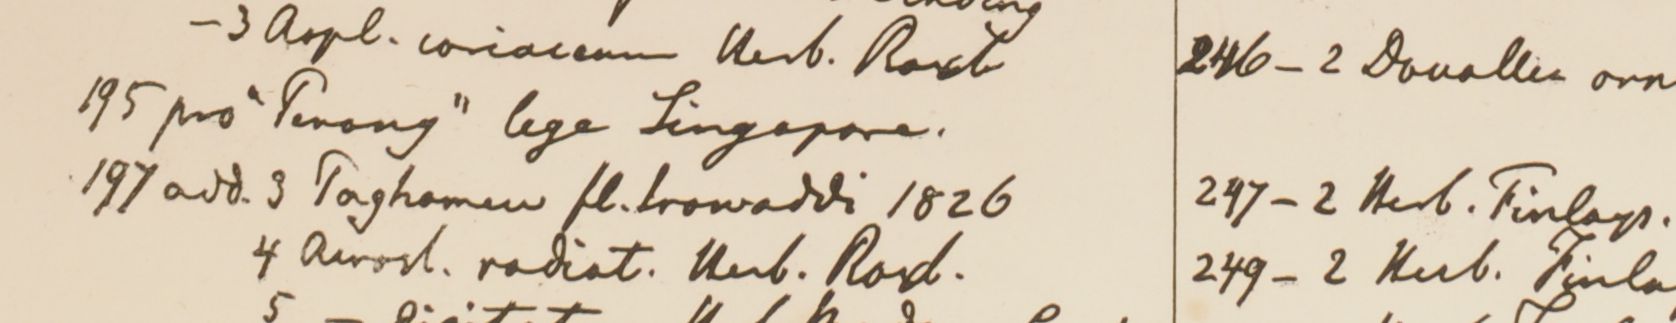 – 3 Aspl. coriaceum Herb. Roxb
195 pro "Penang" lege Singapore.
197 add. 3 Taghamew fl. Irawaddi 1826
4 Acrost. radiat. Herb. Roxb.
5 –
246 – 2 Davallia orn
247 – 2 Herb. Finlays.
249 – 2 Herb. Finla